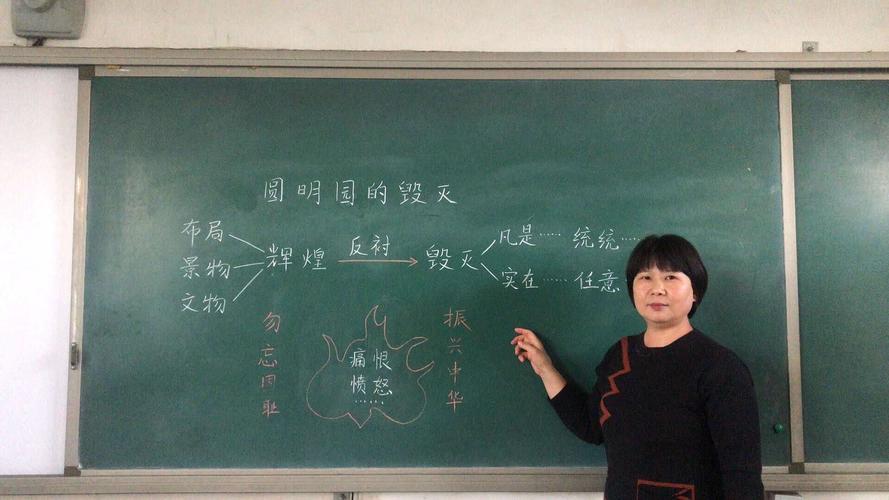 圆明园的毁灭
布局
景物
文物
辉煌
反衬
毁灭
凡是……统统……
实在……任意
勿忘国耻
痛恨
愤怒
……
振兴中华